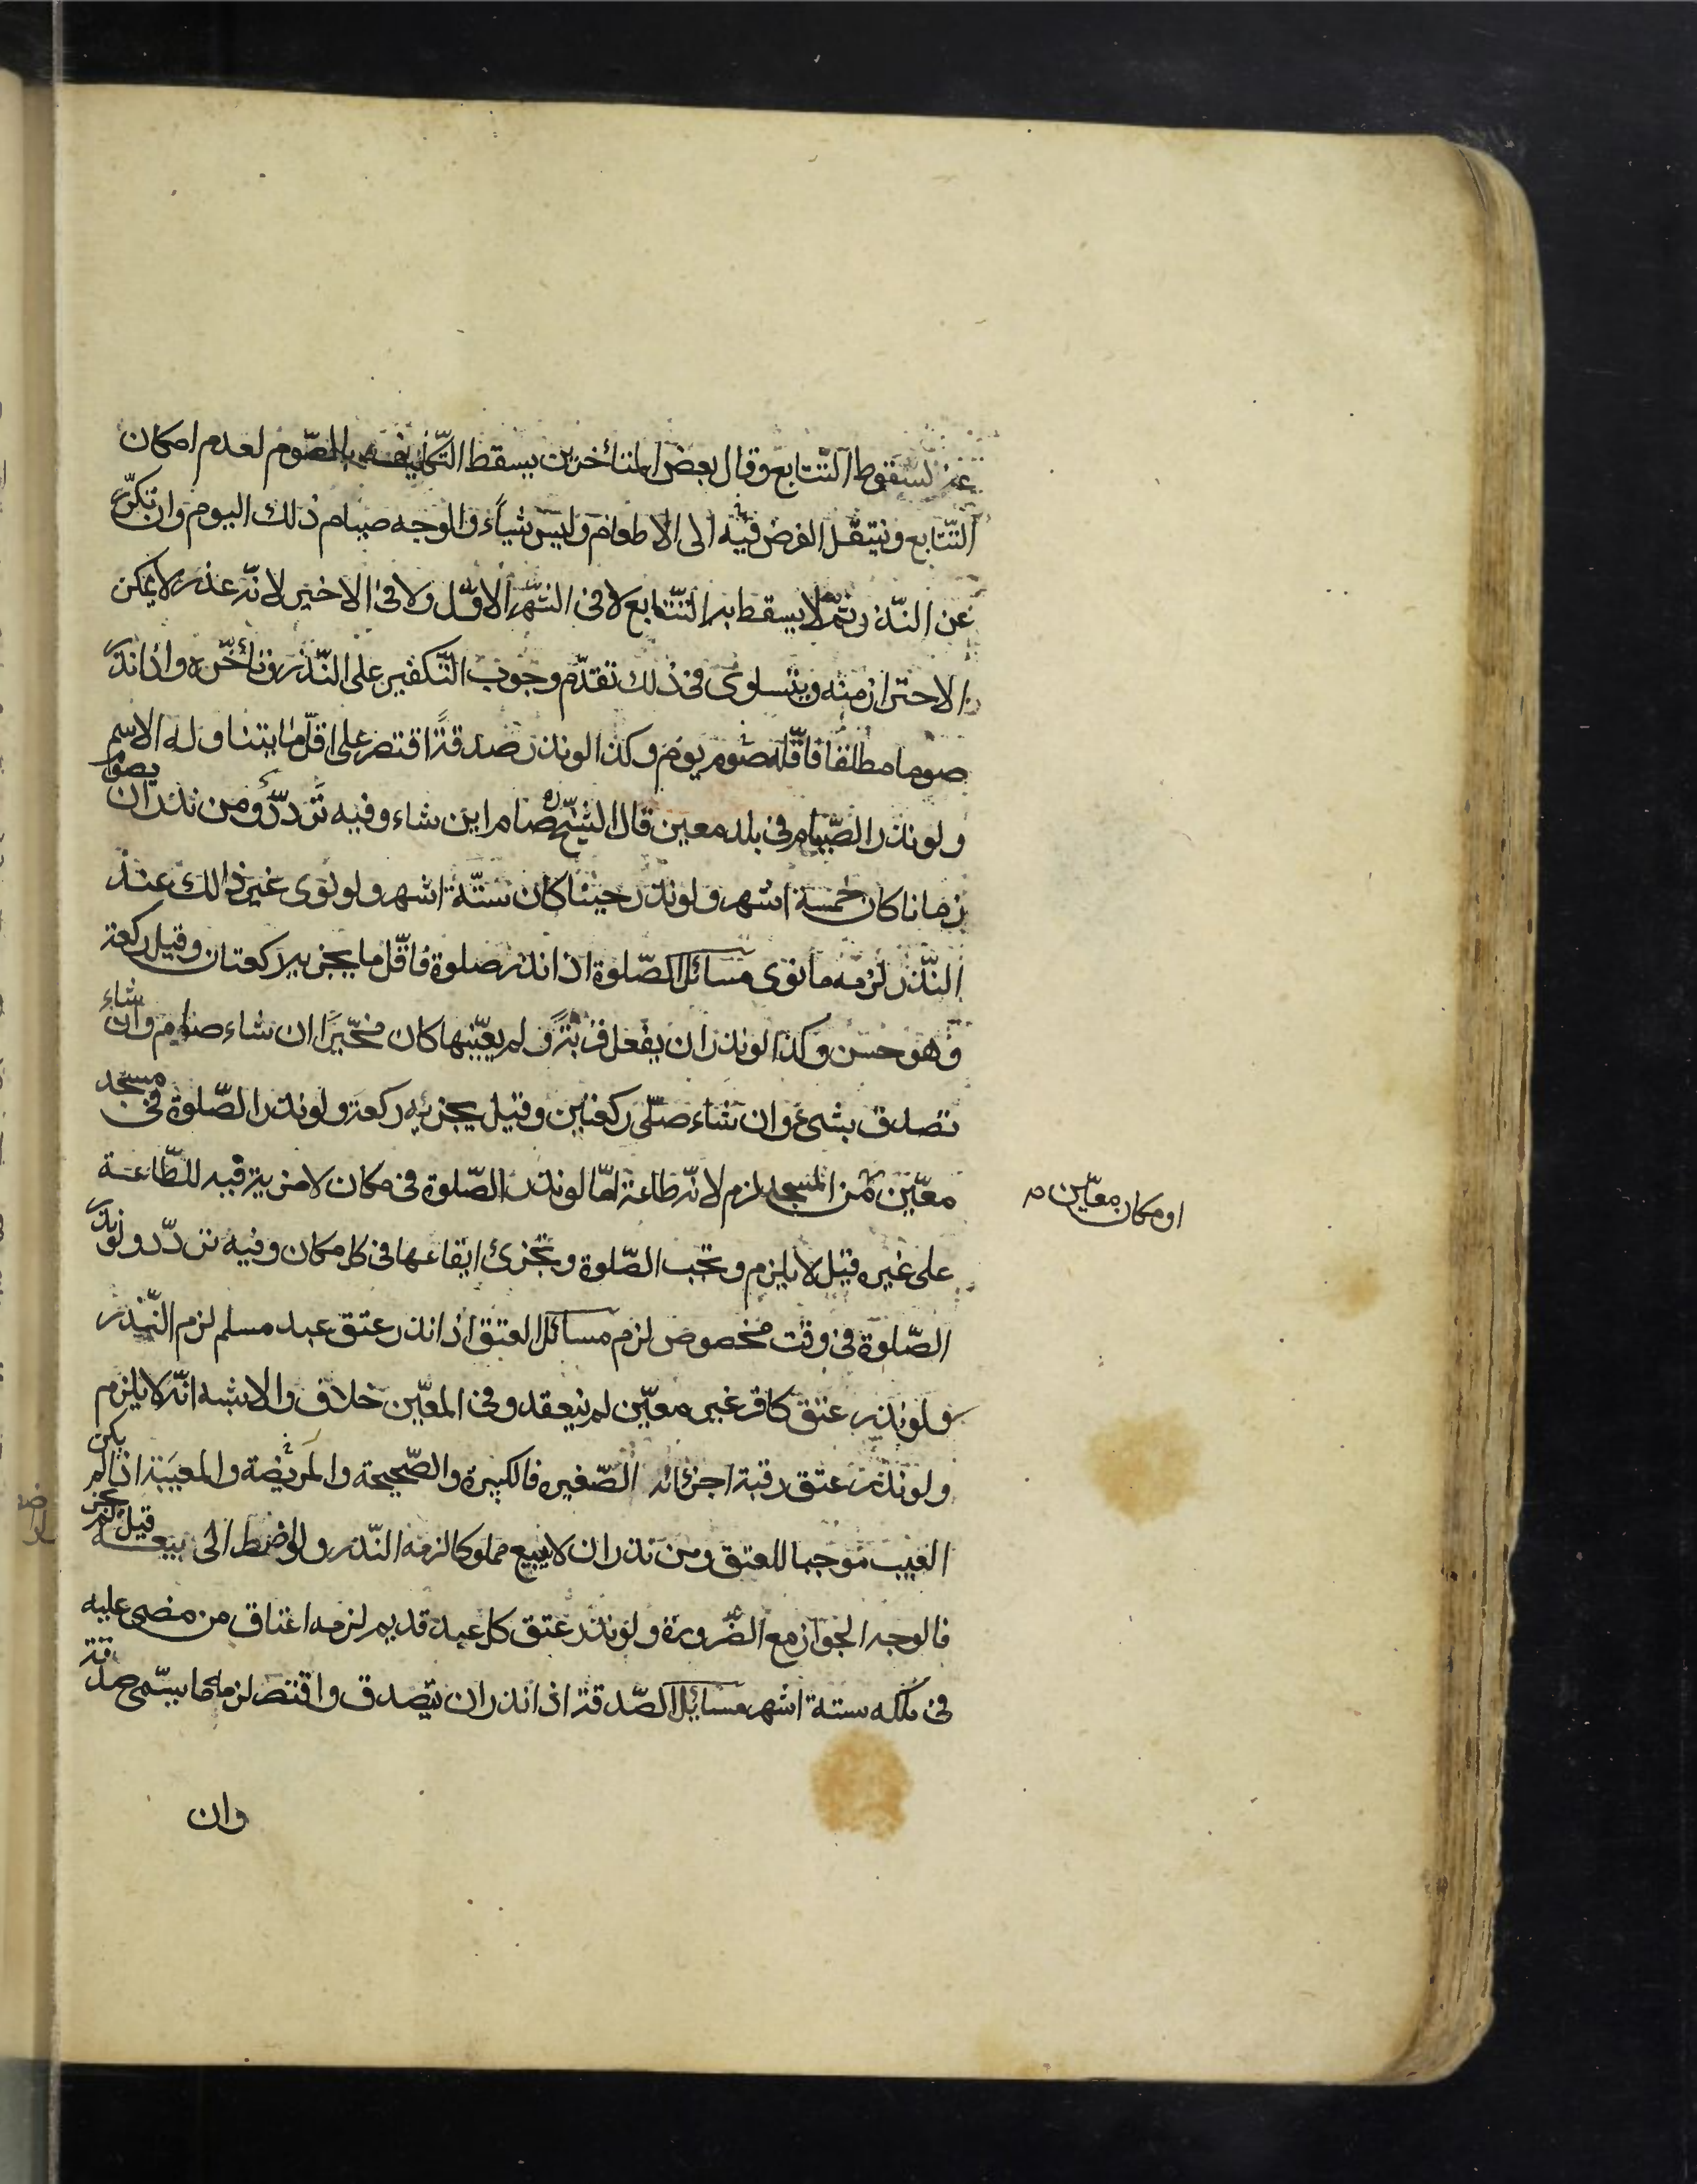 عنه لسقوط التّتابع وقال بعض المتأخرين يسقط التّكليف بالصّوم لعدم امكان
التّتابع وينتقل الفرض فيه الى الاطعام وليس شيأً والوجه صيام ذلك اليوم وان تكرّر
عن النّذر ثمّ لا يسقط به التّتابع لا فى الشّهر الاوّل ولا فى الاخير لانّه عذر لا يمكن
الاحتراز منه ويتساوى فى ذلك تقدّم وجوب التّكفير على النّذر وتأخّره واذا نذر
صوما مطلقا فاقلّه صوم يوم وكذا لو نذر صدقةً اقتصر على اقلّ ما يتناوله الاسم
ولو نذر الصّيام فى بلد معين قال الشّيخ ره صام اين شاء وفيه تردّد ومن نذر ان يصوم
زمانا كان خمسة اشهر ولو نذر حينا كان ستّة اشهر ولو نوى غير ذالك عند
النّذر لزمه ما نوى مسائل الصّلوة اذا نذر صلوة فاقلّ ما يجزيه ركعتان وقيل ركعة
وهو حسن وكذا لو نذر ان يفعل قربةً ولم يعيّنها كان مخيّراً ان شاء صام وان شاء
تصدق بشىء وان شاء صلّى ركعتين وقيل يجزيه ركعة ولو نذر الصّلوة فى مسجد
معيّن من المسجد لزم لانّه طاعة امّا لو نذر الصّلوة فى مكان لا مزية فيه للطّاعة
او مكان معيّن م
على غيره قيل لا يلزم وتجب الصّلوة ويجزئ ايقاعها فى كل مكان وفيه تردّد ولو نذر
الصّلوة فى وقت مخصوص لزم مسائل العتق اذا نذر عتق عبد مسلم لزم النّذر
ولو نذر عتق كافر غير معيّن لم ينعقد وفى المعيّن خلاف والاشبه انّه لا يلزم
ولو نذر عتق رقبة اجزائه الصّغيره فالكبيرة والصّحيحة والمريضة والمعيبة اذا لم يكن
العيب موجبا للعتق ومن نذر ان لا يبيع مملوكا لزمه النّذر ولو اضطر الى بيعه قيل لم يجز
فالوجه الجواز مع الضّرورة ولو نذر عتق كل عبد قديم لزمه اعتاق من مضى عليه
فى ملكه ستة اشهر مسايل الصّدقة اذا نذر ان يتصدق واقتصر لزمه ما يسمّى صدقة
وان